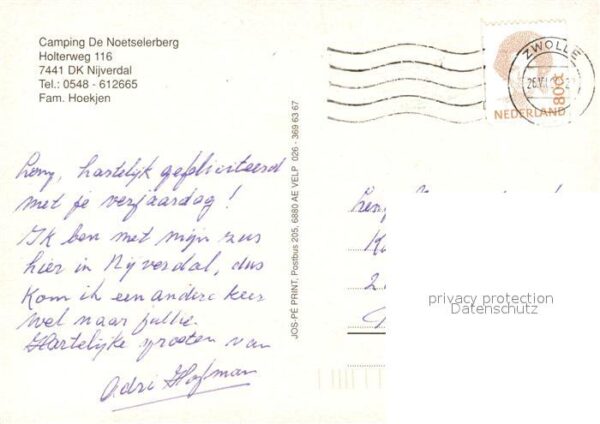 Camping De Noetselerberg
Holterweg 116
7441 DK Nijverdal
Tel.: 0548 - 612665
Fam. Hoekjen
Leny, hartelijk gefeliciteerd
met je verjaardag!
Ik ben met mijn zus
hier in Nijverdal, dus
kom ik een andere keer
wel naar jullie.
Hartelijke groeten van
Adri Hofman
JOS-PÉ PRINT, Postbus 205, 6880 AE VELP 026 - 369 63 67
ZWOLLE
80c
NEDERLAND
privacy protection
Datenschutz